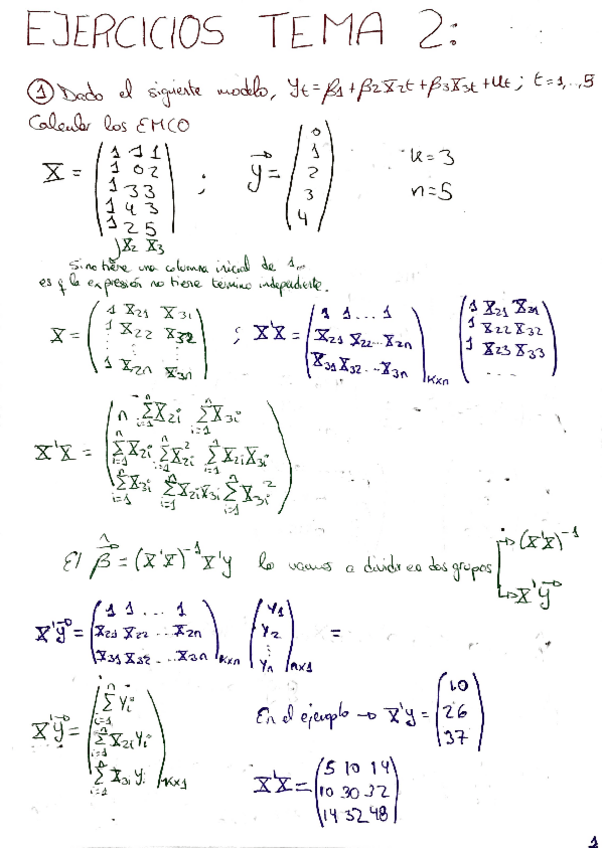 EJERCICIOS TEMA 2:
① Dado el siguiente modelo, Yt=β1+β2X2t+β3X3t+ut; t=1,..,5
Calcular los EMCO
X = (1 1 1; 1 0 2; 1 3 3; 1 4 3; 1 2 5) ; y = (0; 1; 2; 3; 4) k=3
n=5
X2 X3
Si no tiene una columna inicial de 1,..
es q la expresión no tiene termino independiente.
X = (1 X21 X31; 1 X22 X32; ⋮ ⋮ ⋮; 1 X2n X3n) ; X'X = (1 1 ... 1; X21 X22 ... X2n; X31 X32 ... X3n)kxn (1 X21 X31; 1 X22 X32; 1 X23 X33; ...)
X'X = (n ΣX2i ΣX3i; ΣX2i ΣX2i² ΣX2iX3i; ΣX3i ΣX2iX3i ΣX3i²)
El β̂ = (X'X)⁻¹X'y lo vamos a dividir en dos grupos → (X'X)⁻¹
→ X'y
X'y = (1 1 ... 1; X21 X22 ... X2n; X31 X32 ... X3n)kxn (Y1; Y2; ⋮; Yn)nx1 =
X'y = (ΣYi; ΣX2iYi; ΣX3iYi)kx1 En el ejemplo → X'y = (10; 26; 37)
X'X = (5 10 14; 10 30 32; 14 32 48)
1